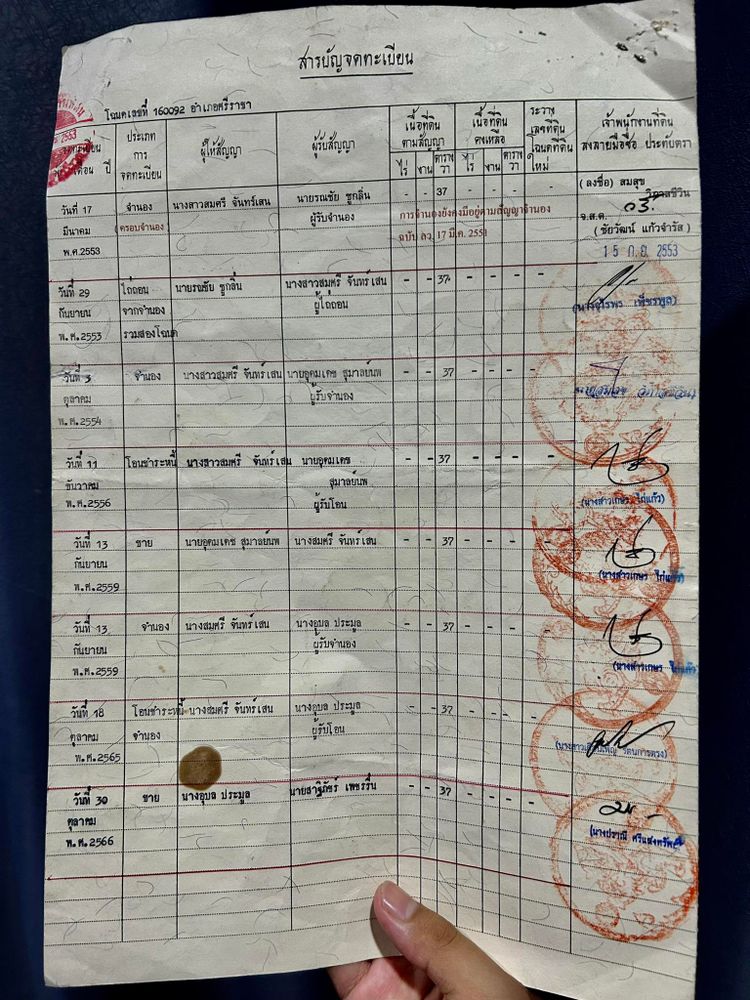 สารบัญจดทะเบียน
โฉนดเลขที่ 160092 อำเภอศรีราชา
จดทะเบียน
เดือน ปี
ประเภท
การ
จดทะเบียน
ผู้ให้สัญญา
ผู้รับสัญญา
เนื้อที่ดิน
ตามสัญญา
ไร่ งาน ตาราง
วา
เนื้อที่ดิน
คงเหลือ
ไร่ งาน ตาราง
วา
ระวาง
เลขที่ดิน
โฉนดที่ดิน
ใหม่
เจ้าพนักงานที่ดิน
ลงลายมือชื่อ ประทับตรา
วันที่ 17 จำนอง นางสาวสมศรี จันทร์เสน นายรณชัย ชูกลิ่น - - 37 - - - - (ลงชื่อ) สมสุข
มีนาคม (ครอบจำนอง) ผู้รับจำนอง การจำนองยังคงมีอยู่ตามสัญญาจำนอง จ.ส.ต.
พ.ศ.2553 ฉบับ ลว. 17 มี.ค. 2551 (ชัยวัฒน์ แก้วจำรัส)
15 ก.ย. 2553
วันที่ 29 ไถ่ถอน นายรณชัย ชูกลิ่น นางสาวสมศรี จันทร์เสน - - 37 - - - -
กันยายน จากจำนอง ผู้ไถ่ถอน
พ.ศ.2553 รวมสองโฉนด
วันที่ 3 จำนอง นางสาวสมศรี จันทร์เสน นายอุดมเดช สุมาลย์นพ - - 37 - - - -
ตุลาคม ผู้รับจำนอง
พ.ศ.2554
วันที่ 11 โอนชำระหนี้ นางสาวสมศรี จันทร์เสน นายอุดมเดช - - 37 - - - -
ธันวาคม สุมาลย์นพ
พ.ศ.2556 ผู้รับโอน
(นางสาวเกษร ไก่แก้ว)
วันที่ 13 ขาย นายอุดมเดช สุมาลย์นพ นางสมศรี จันทร์เสน - - 37 - - - -
กันยายน (นางสาวเกษร ไก่แก้ว)
พ.ศ.2559
วันที่ 13 จำนอง นางสมศรี จันทร์เสน นางอุบล ประมูล - - 37 - - - -
กันยายน ผู้รับจำนอง
พ.ศ.2559 (นางสาวเกษร ไก่แก้ว)
วันที่ 18 โอนชำระหนี้ นางสมศรี จันทร์เสน นางอุบล ประมูล - - 37 - - - -
ตุลาคม จำนอง ผู้รับโอน
พ.ศ.2565
วันที่ 30 ขาย นางอุบล ประมูล - - 37 - - - -
ตุลาคม
พ.ศ.2566 (นางปราณี ศรีแสงทรัพย์)